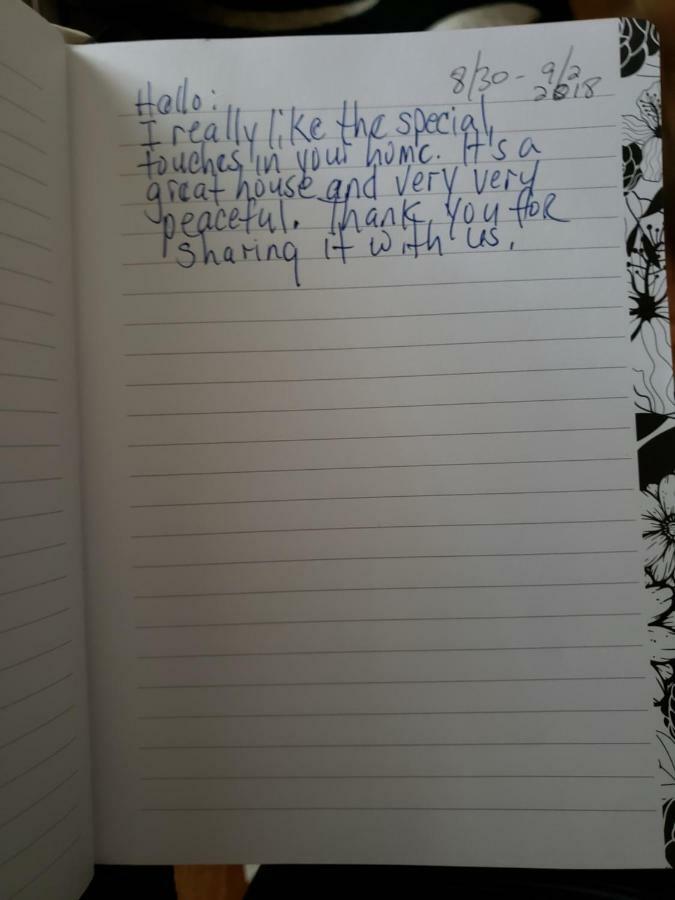 8/30 - 9/2
2018
Hallo:
I really like the special
touches in your home. It's a
great house and very very
peaceful. Thank you for
sharing it with us.